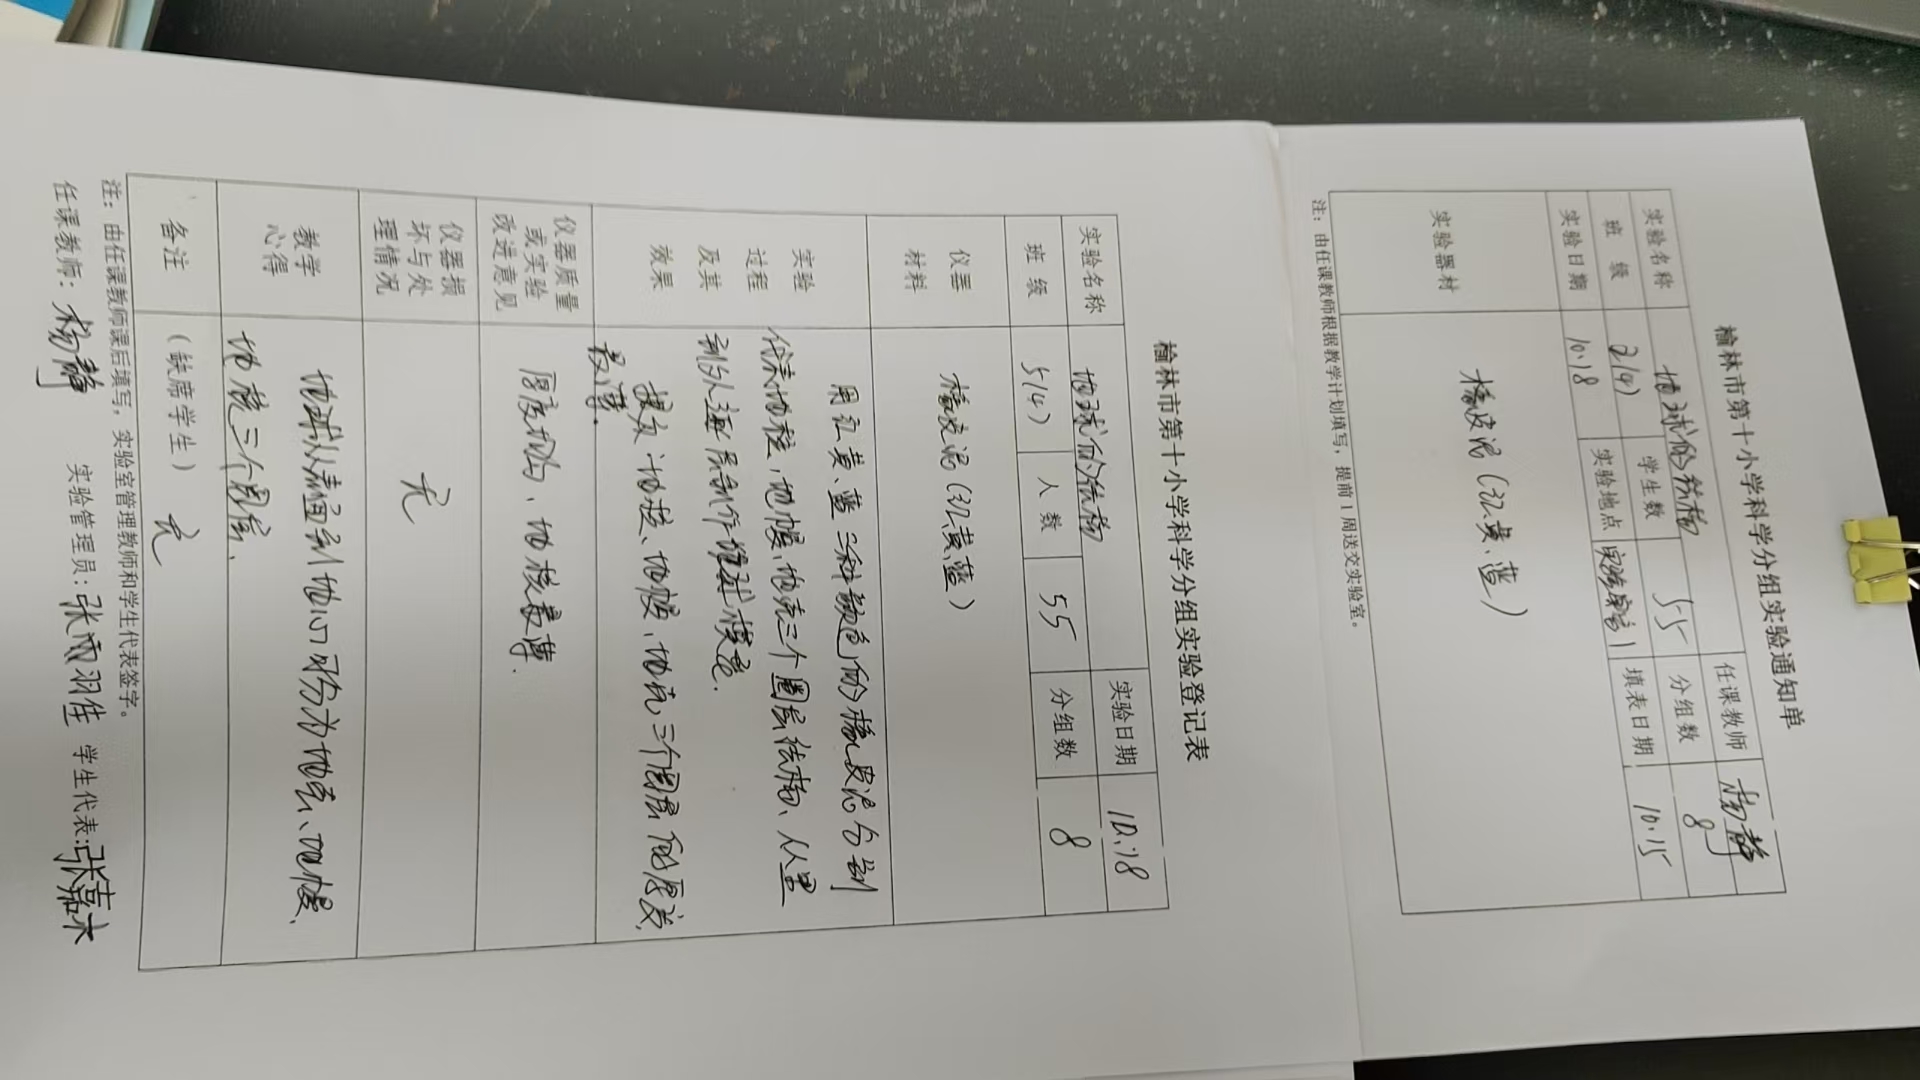 榆林市第十小学科学分组实验通知单
实验名称 地球的结构 任课教师 杨静
班 级 5(4) 学生数 55 分组数 8
实验日期 10.18 实验地点 实验室1 填表日期 10.15
实验器材 橡皮泥(红、黄、蓝)
注:由任课教师根据教学计划填写,提前1周送交实验室。
榆林市第十小学科学分组实验登记表
实验名称 地球的结构 实验日期 10.18
班 级 5(4) 人 数 55 分组数 8
仪器
材料
橡皮泥(红、黄、蓝)
实验
过程
及其
效果
用红、黄、蓝三种颜色的橡皮泥分别
代表地核、地幔、地壳三个圈层结构、从里
到外逐层制作地球模型.
提炼:地核、地幔、地壳三个圈层的厚薄,
最薄.
仪器质量
或实验
改进意见
厚度均匀、地核最薄.
仪器损
坏与处
理情况
无
教学
心得
地球从表面到地心可分为地壳、地幔、
地核三个圈层.
备注
(缺席学生) 无
注:由任课教师课后填写,实验室管理教师和学生代表签字。
任课教师:杨静 实验管理员:张雨羽佳 学生代表:张嘉沐